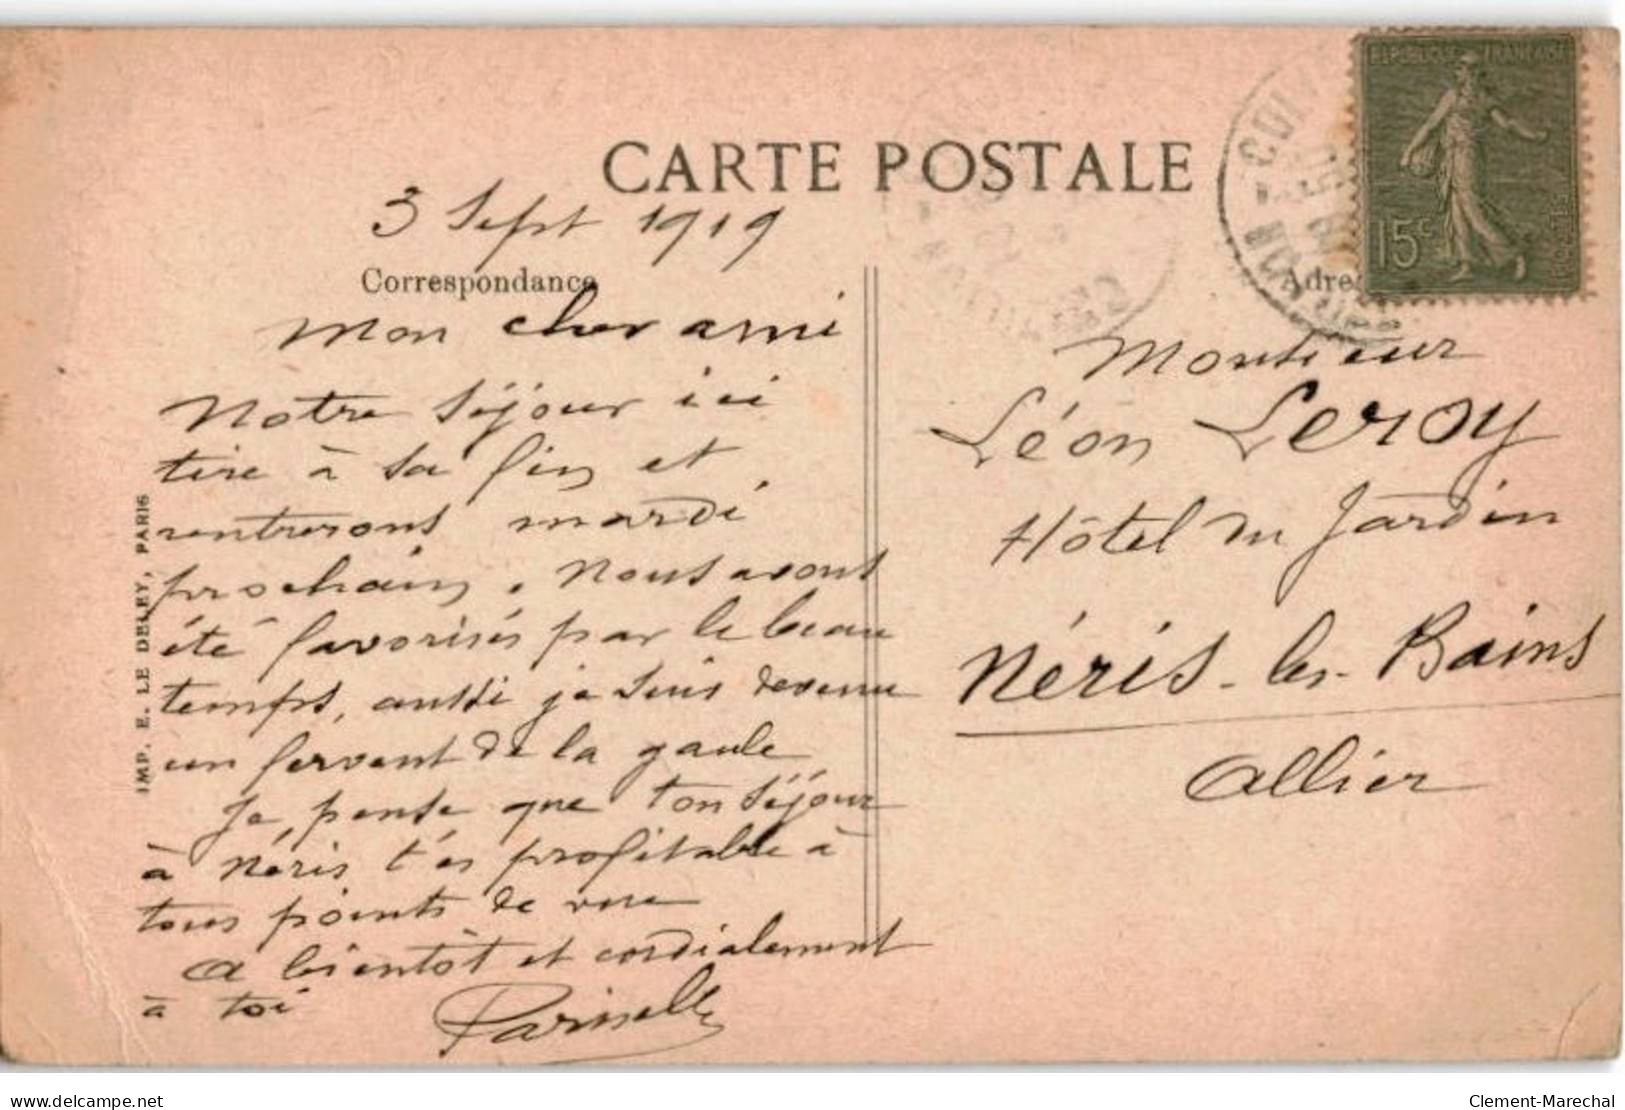 CARTE POSTALE
3 Sept 1919
Correspondance
Mon cher ami
Notre séjour ici
tire à sa fin et
rentrerons mardi
prochain. Nous avons
été favorisés par le beau
temps, aussi je suis devenu
un fervent de la gaule
Je pense que ton séjour
à Néris t'es profitable à
tous points de vue
A bientôt et cordialement
à toi
IMP. E. LE DELEY, PARIS
REPUBLIQUE FRANÇAISE
15c
POSTES
Adre
Monsieur
Léon Leroy
Hôtel du Jardin
Néris-les-Bains
Allier
delcampe.net
Clement-Marechal